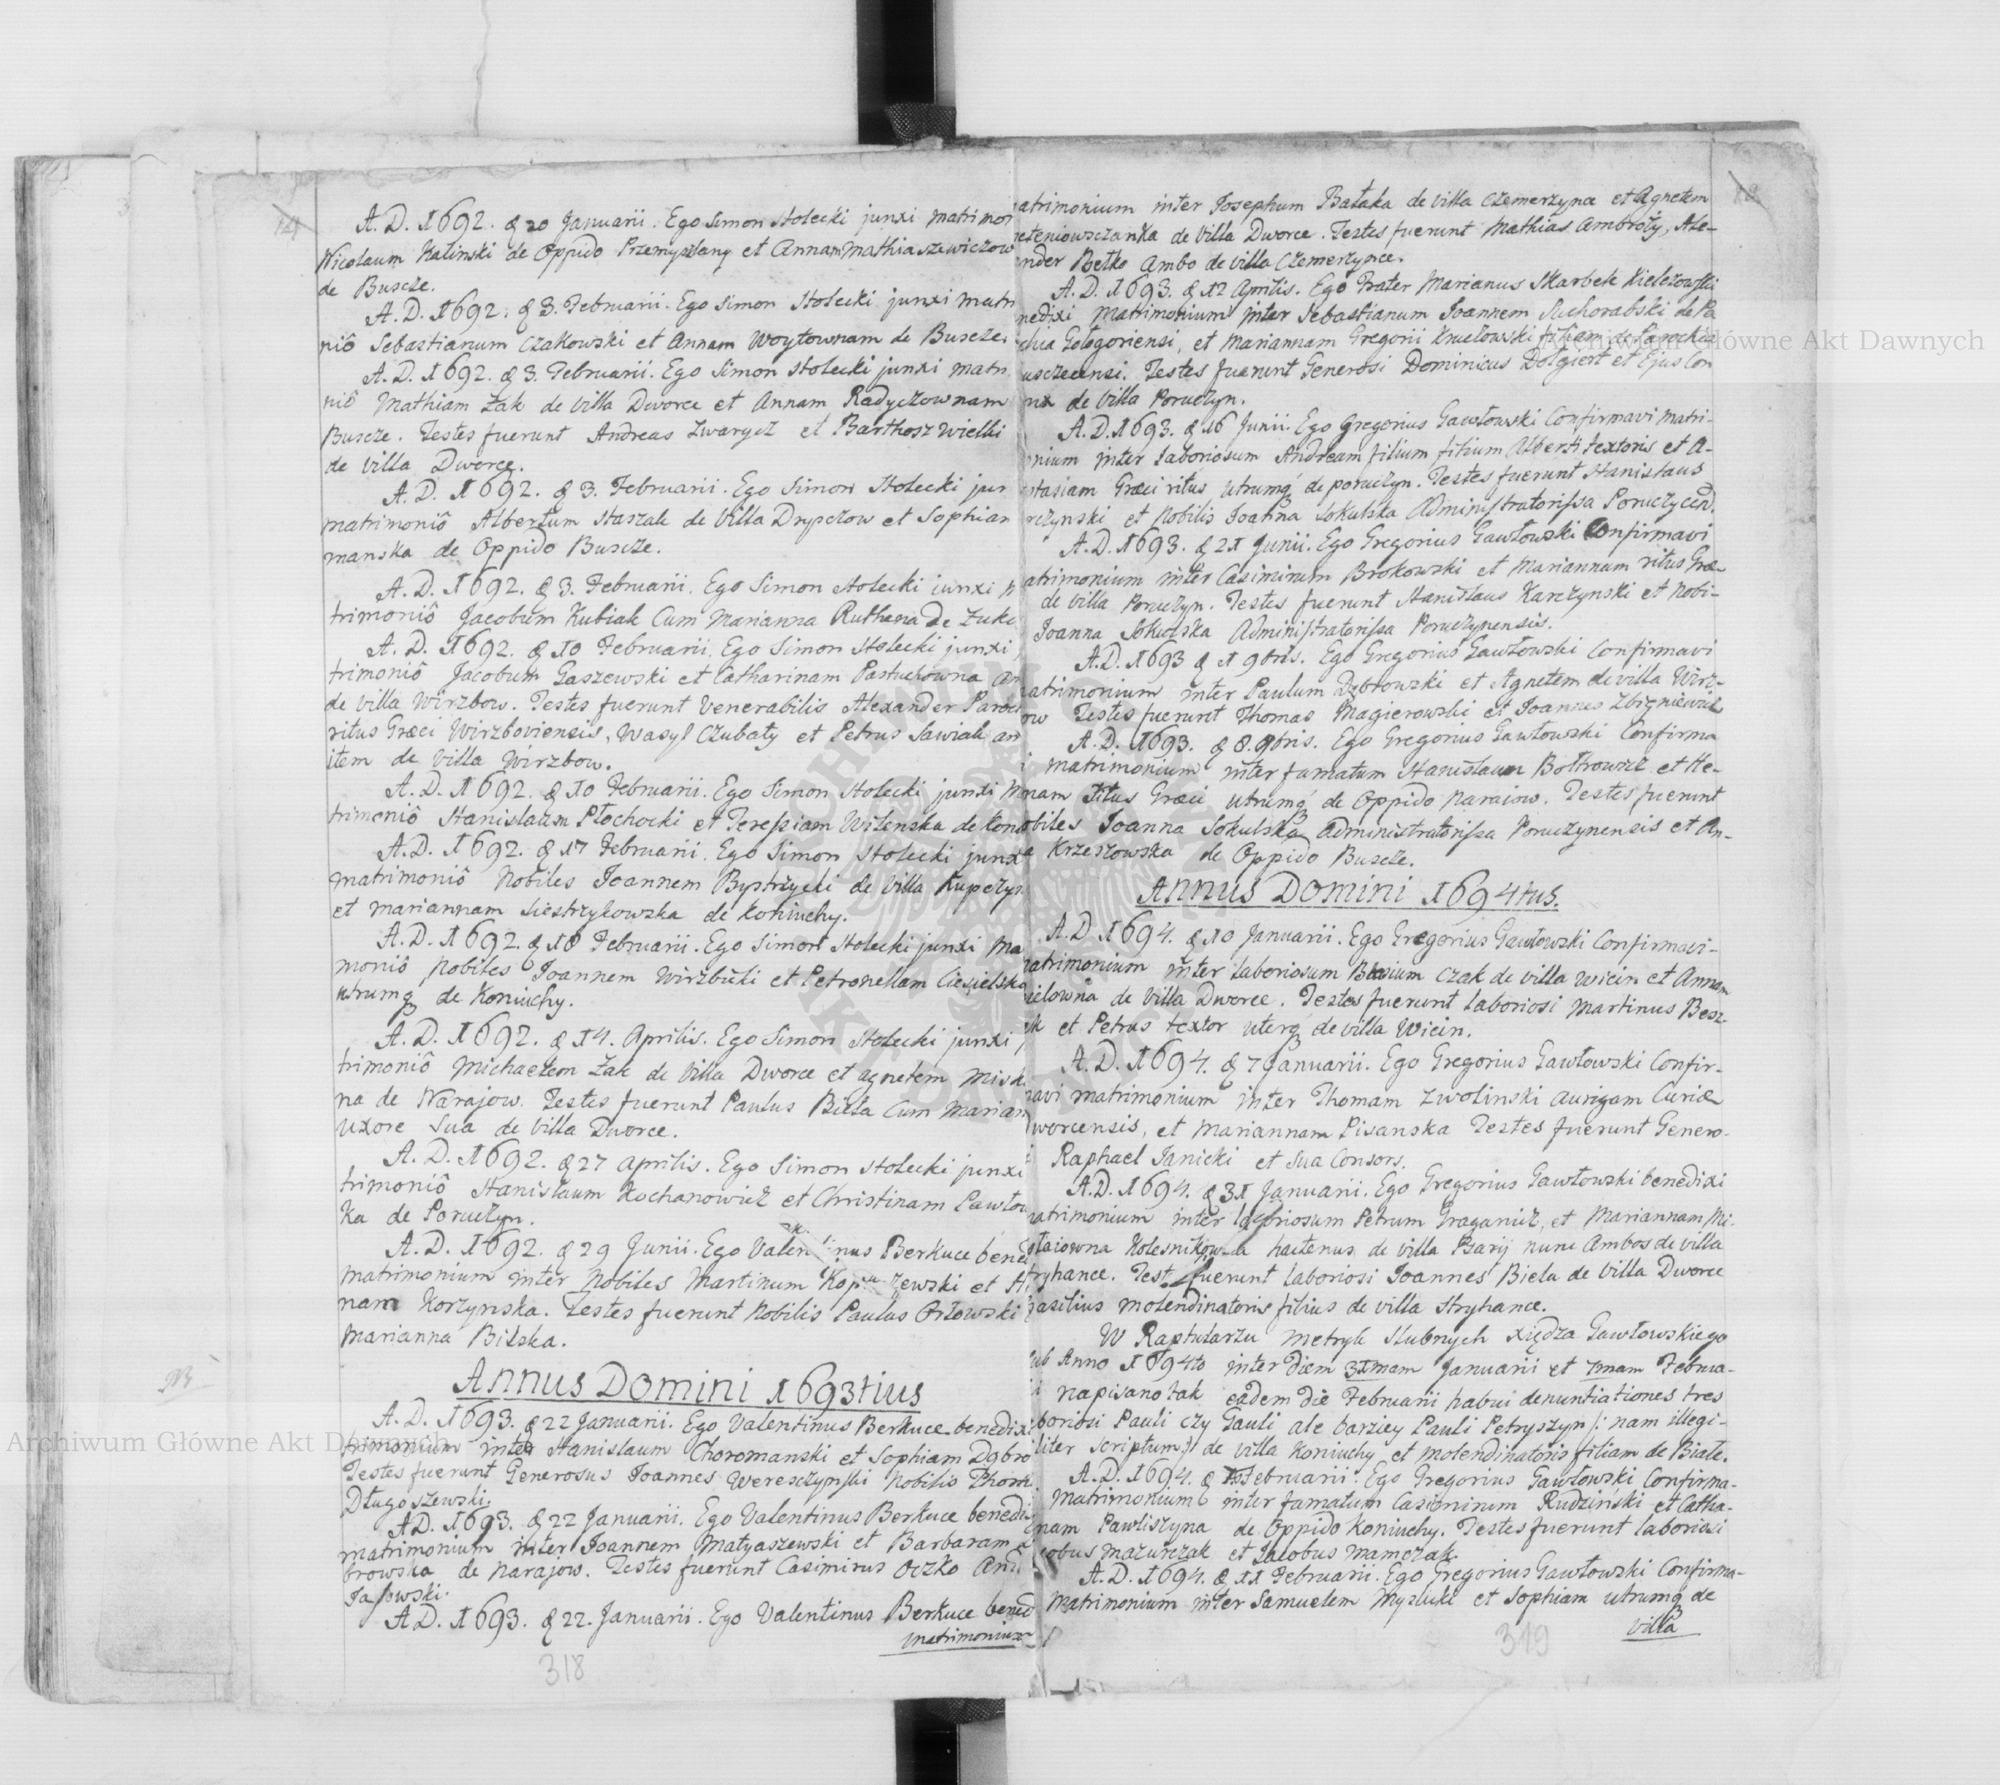 14
A. D. 1692. d 20 Januarii. Ego Simon Stolecki junxi matrimon
Nicolaum Kalinski de Oppido Przemyszlany et Annam Mathiaszewiczow
de Buscze.
A. D. 1692. d 3. Februarii. Ego Simon Stolecki junxi matri
niô Sebastianum Czakowski et Annam Woytownam de Buscze.
A. D. 1692. d 3. Februarii. Ego Simon Stolecki junxi matri
niô Mathiam Zak de Villa Dworce et Annam Radyczownam
Buscze. Testes fuerunt Andreas Zwarycz et Barthosz Wielki
de Villa Dworce.
A. D. 1692. d 3. Februarii. Ego Simon Stolecki jun
matrimoniô Albertum Staszak de Villa Dryszczow et Sophian
manska de Oppido Buscze.
A. D. 1692. d 3. Februarii. Ego Simon Stolecki iunxi
trimoniô Jacobum Kubiak Cum Marianna Ruthena de Zuko
A. D. 1692. d 10 Februarii. Ego Simon Stolecki junxi
trimoniô Jacobum Gaszewski et Catharinam Pastuchowna am
de villa Wirzbow. Testes fuerunt Venerabilis Alexander Paroch
ritus Græci Wirzboviensis, Wasyl Czubaty et Petrus Sawiak am
item de Villa Wirzbow.
A. D. 1692. d 10 Februarii. Ego Simon Stolecki junxi m
trimoniô Stanislaum Plochocki et Teressiam Wilenska de Koni
A. D. 1692. d 17 Februarii. Ego Simon Stolecki junx
matrimoniô Nobiles Joannem Bystrzycki de Villa Kupczyn
et Mariannam Siestrzykowska de Koniuchy.
A. D. 1692. d 18 Februarii. Ego Simon Stolecki junxi ma
moniô Nobiles Joannem Wirzbicki et Petronellam Ciesielska
utrumq de Koniuchy.
A. D. 1692. d 14. Aprilis. Ego Simon Stolecki junxi
trimoniô Michaelem Zak de Villa Dworce et agnetem Misk
na de Narajow. Testes fuerunt Paulus Biela Cum Marian
uxore Sua de Villa Dworce.
A. D. 1692. d 27 Aprilis. Ego Simon Stolecki junxi
trimoniô Stanislaum Kochanowicz et Christinam Pawlow
Ka de Poruczyn.
A. D. 1692. d 29 Junii. Ego Valentinus Berkuce bene
matrimonium inter Nobiles Martinum Kop zewski et A
nam Korzynska. Testes fuerunt Nobilis Paulus Orlowski
Marianna Bilska.
Annus Domini 1693tius
A. D. 1693. d 22 Januarii. Ego Valentinus Berkuce benedixi
trimonium inter Stanislaum Choromanski et Sophiam Dąbro
Testes fuerunt Generosus Joannes Weresczynski Nobilis Thom
Długoszewski.
A.D. 1693. d 22 Januarii. Ego Valentinus Berkuce benedi
matrimonium inter Joannem Matyaszewski et Barbaram
browska de Narajow. Testes fuerunt Casimirus Oczko And
Jasowski.
A.D. 1693. d 22. Januarii. Ego Valentinus Berkuce bened
matrimonium
318
atrimonium inter Josephum Bałaka de villa Czemerzynce et Agnetem
eteniowsczanka de Villa Dworce. Testes fuerunt Mathias Ambroży, Ale-
ander Betko Ambo de villa Czemerzynce.
A. D. 1693. d 12 Aprilis. Ego Frater Marianus Skarbek Kielczowski
nedixi matrimonium inter Sebastianum Joannem Suchorabski de Pa
chia Gologoriensi, et Mariannam Gregorii Knielowski filiam de Parochia
usczecensi. Testes fuerunt Generosi Dominicus Dolgiert et Ejus Con
nx de Villa Poruczyn.
A. D. 1693. d 16 Junii. Ego Gregorius Gawłowski Confirmavi matri-
onium inter laboriosum Andream filium filium Alberti textoris et A-
stasiam Græci ritus, utrumq de poruczyn. Testes fuerunt Stanislaus
rczynski et Nobilis Joanna Sokulska Administratorissa Poruczycen.
A. D. 1693. d 21 Junii. Ego Gregorius Gawłowski Confirmavi
atrimonium inter Casimirum Brokowski et Mariannam ritus Græ
de villa Poruczyn. Testes fuerunt Stanislaus Karczynski et Nobi-
Joanna Sokulska Administratorissa Poruczynensis.
A. D. 1693 d 1 9bris. Ego Gregorius Gawłowski Confirmavi
atrimonium inter Paulum Dąbrowski et Agnetem de villa Wirz-
ow Testes fuerunt Thomas Magierowski et Joannes Zbigniewicz
A. D. 1693. d 8. 9bris. Ego Gregorius Gawłowski Confirma
i matrimonium inter famatum Stanislaum Bołtrowicz et He-
nam ritus Græci utrumq de Oppido Narajow. Testes fuerunt
obiles Joanna Sokulska Administratorissa Poruczynensis et An-
a Krzeszowska de Oppido Buscze.
Annus Domini 1694tus.
A. D. 1694. d 10 Januarii. Ego Gregorius Gawłowski Confirmavi-
atrimonium inter laboriosum Blasium Czak de villa Wicin et Annam
ielowna de Villa Dworce. Testes fuerunt laboriosi Martinus Besz-
k et Petrus textor uterq de villa Wicin.
A. D. 1694. d 7 Januarii. Ego Gregorius Gawłowski Confir-
avi matrimonium inter Thomam Zwolinski aurigam Curiæ
worcensis, et Mariannam Pisanska Testes fuerunt Genero-
i Raphael Janicki et Sua Consors.
A. D. 1694. d 31 Januarii. Ego Gregorius Gawłowski benedixi
atrimonium inter laboriosum Petrum Graganicz, et Mariannam Mi-
ołaiowna Kolesnikowna hactenus de villa Psarij nunc Ambos de villa
tryhance. Test. fuerunt laboriosi Joannes Biela de Villa Dworce
asilius molendinatoris filius de villa Stryhance.
W Raptularzu Metryk slubnych xiędza Gawłowskiego
ub Anno 1694to inter diem 31mam Januarii et 7mam Februa-
ii napisano tak eadem die Februarii habui denuntiationes tres
boriosi Pauli czy Gauli ale barziey Pauli Petryszyn (: nam illegi-
liter scriptum) de villa Koniuchy et molendinatoris filiam de Białe.
A. D. 1694. d Februarii. Ego Gregorius Gawłowski Confirma-
Matrimonium inter famatum Casimirum Rudziński et Catha-
nam Pawliszyna de Oppido Koniuchy. Testes fuerunt laboriosi
cobus Mazurczak et Jacobus Mamczak.
A. D. 1694. d 11 Februarii. Ego Gregorius Gawłowski Confirma-
Matrimonium inter Samuelem Myzluki et Sophiam utrumq de
villa
319
Archiwum Główne Akt Dawnych
Archiwum Główne Akt Dawnych